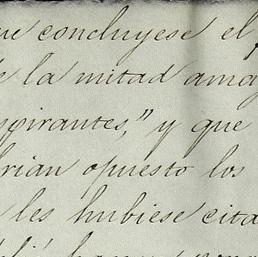 ue concluyese el p
e la mitad ama
spirantes," y que
rian opuesto los
les hubiese cita